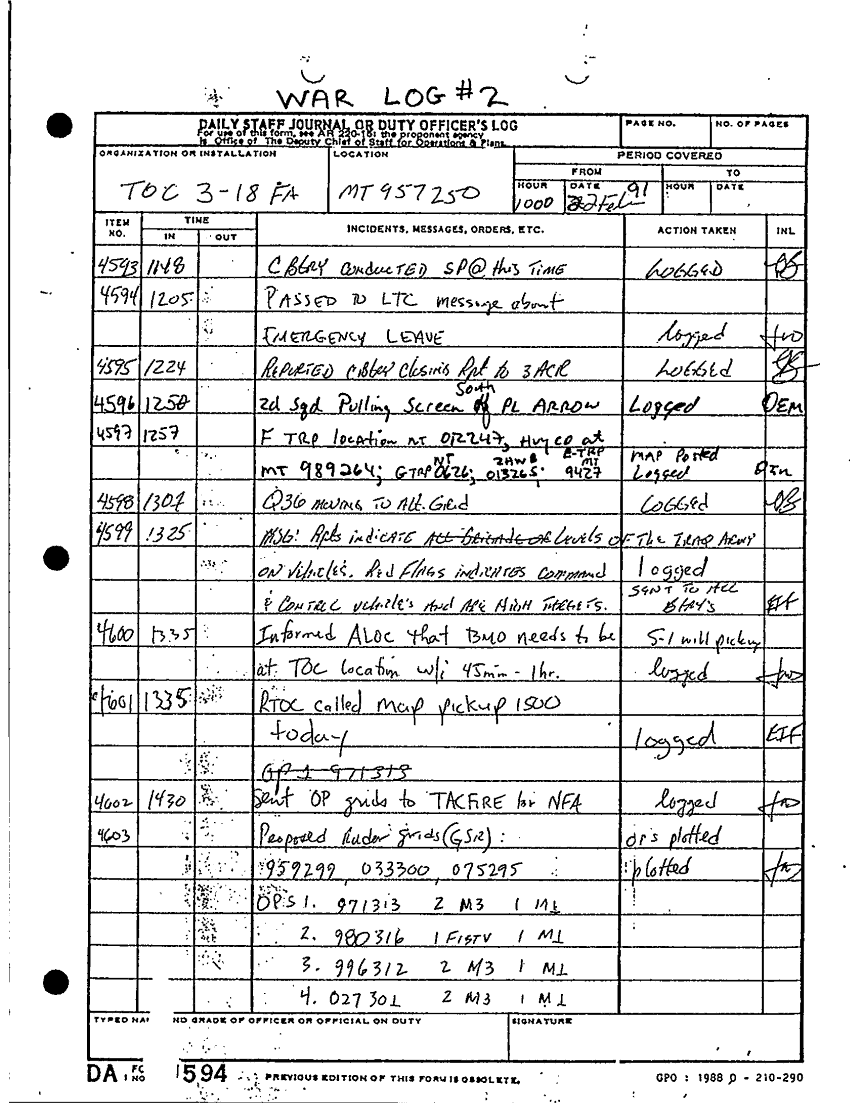 WAR LOG #2
DAILY STAFF JOURNAL OR DUTY OFFICER'S LOG
For use of this form, see AR 220-15; the proponent agency
is Office of The Deputy Chief of Staff for Operations & Plans.
PAGE NO.
NO. OF PAGES
ORGANIZATION OR INSTALLATION
TOC 3-18 FA
LOCATION
MT 957250
PERIOD COVERED
FROM
TO
HOUR
1000
DATE
22 Feb 91
HOUR
DATE
ITEM NO.
TIME
IN
OUT
INCIDENTS, MESSAGES, ORDERS, ETC.
ACTION TAKEN
INL
4593 1148 C Btry CONDUCTED SP @ this TIME LOGGED
4594 1205 PASSED TO LTC message about
EMERGENCY LEAVE logged
4595 1224 REPORTED C Btry Closing Rpt to 3 ACR LOGGED
4596 1250 2d Sqd Pulling Screen South of PL ARROW Logged OEM
4597 1257 F TRP location NT 012247, Hvy co at
MT 989264; G TRP NT 0626; 2HWB 013265; E-TRP MT 9427 MAP Posted Logged
4598 1307 Q36 MOVING TO Alt. Grid LOGGED
4599 1325 MSG: Rpts indicate levels OF The IRAQ ARMY
ON vehicles. Red FLAGS indicates command logged
& CONTROL vehicle's And ARE HIGH TARGETS. SENT TO ALL Btry's EIF
4600 1335 Informed ALOC that BMO needs to be S-1 will pickup
at TOC location w/i 45min - 1hr. logged
4601 1335 RTOC called map pickup 1500
today logged EIF
OP 1 971313
4602 1430 Sent OP grids to TACFIRE for NFA logged
4603 Proposed Radar grids (GSR): OP's plotted
959299, 033300, 075295 plotted
OPS 1. 971313 2 M3 1 M1
2. 980316 1 FISTV 1 M1
3. 996312 2 M3 1 M1
4. 027301 2 M3 1 M1
TYPED NA ND GRADE OF OFFICER OR OFFICIAL ON DUTY
SIGNATURE
DA 1594
PREVIOUS EDITION OF THIS FORM IS OBSOLETE.
GPO : 1988 0 - 210-290